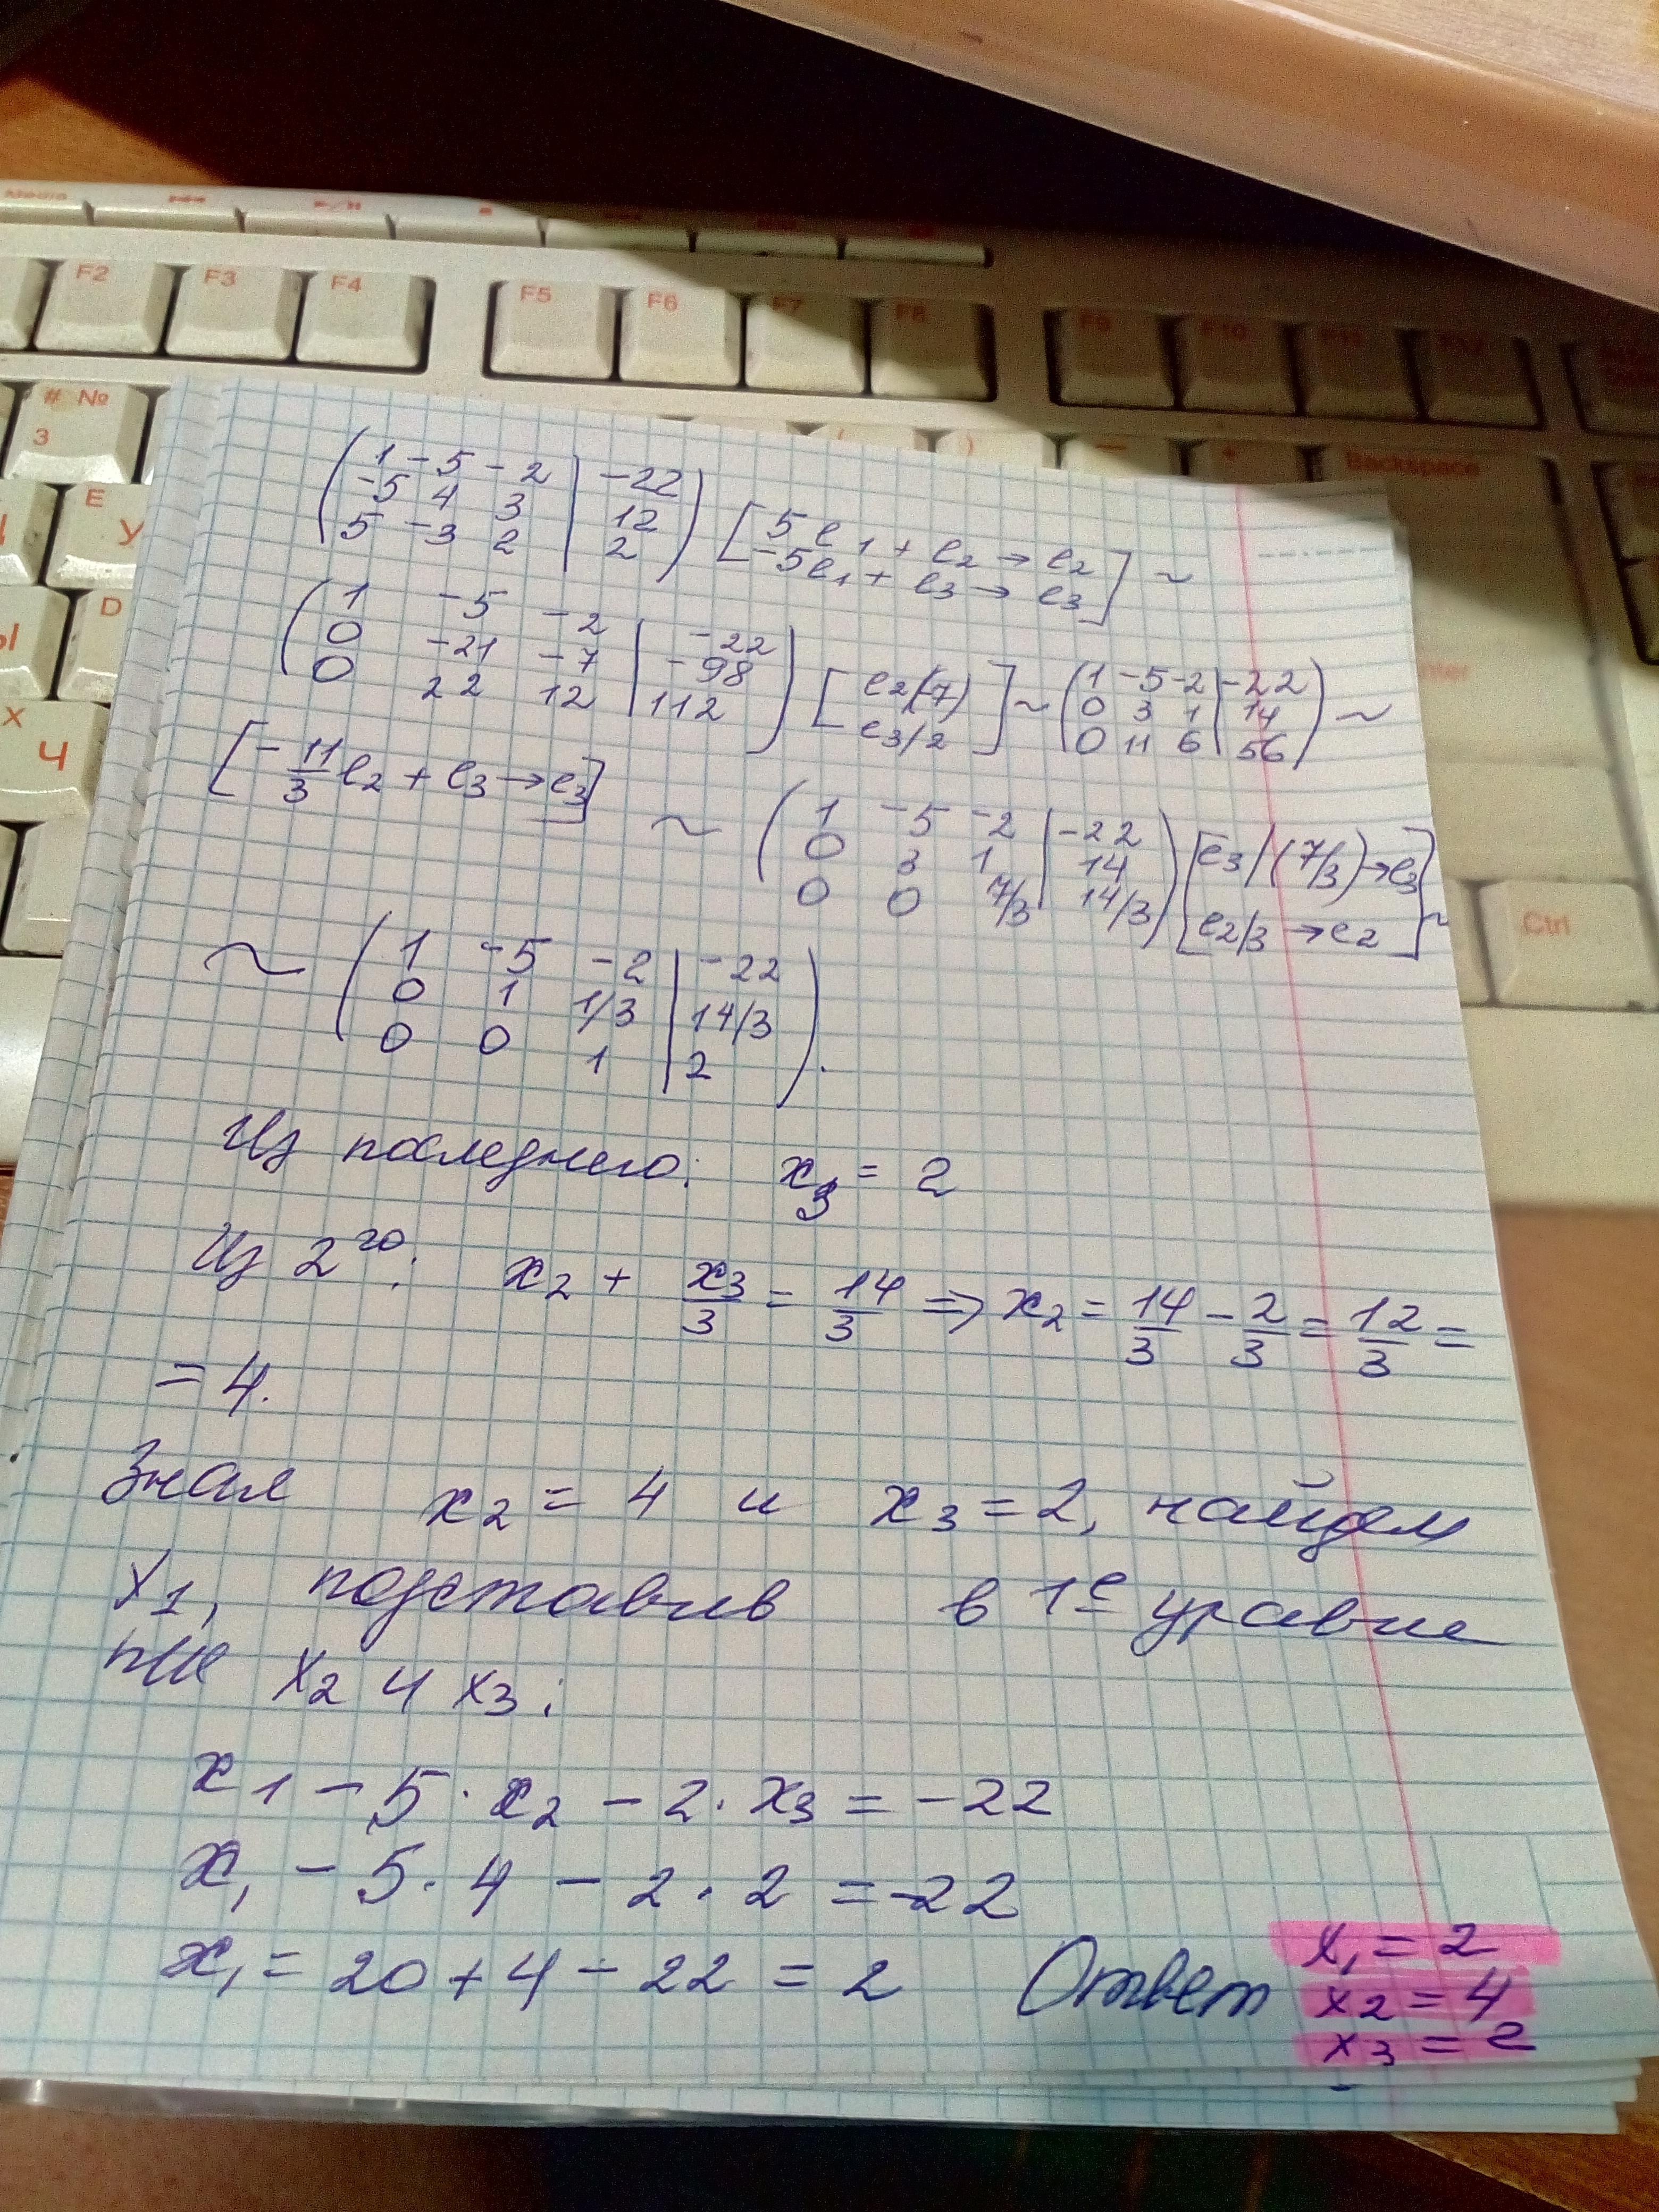 Media
F2 F3 F4 F5 F6 F7 F8 F9 F10 F11 F12
# №
3
Backspace
Е
У
D
Ы
X
Ч
Ctrl
( 1 -5 -2 | -22 )
( -5 4 3 | 12 )
( 5 -3 2 | 2 )
[ 5e1 + e2 → e2 ]
[ -5e1 + e3 → e3 ] ~
( 1 -5 -2 | -22 )
( 0 -21 -7 | -98 )
( 0 22 12 | 112 )
[ e2/(-7) ]
[ e3/2 ] ~
( 1 -5 -2 | -22 )
( 0 3 1 | 14 )
( 0 11 6 | 56 ) ~
[ -11/3 e2 + e3 → e3 ] ~
( 1 -5 -2 | -22 )
( 0 3 1 | 14 )
( 0 0 7/3 | 14/3 )
[ e3/(7/3) → e3 ]
[ e2/3 → e2 ] ~
~ ( 1 -5 -2 | -22 )
( 0 1 1/3 | 14/3 )
( 0 0 1 | 2 ).
Из последнего: x3 = 2
Из 2го: x2 + x3/3 = 14/3 => x2 = 14/3 - 2/3 = 12/3 =
= 4.
Зная x2 = 4 и x3 = 2, найдем
x1, подставив в 1е уравне
ние x2 и x3:
x1 - 5·x2 - 2·x3 = -22
x1 - 5·4 - 2·2 = -22
x1 = 20 + 4 - 22 = 2 Ответ
x1 = 2
x2 = 4
x3 = 2